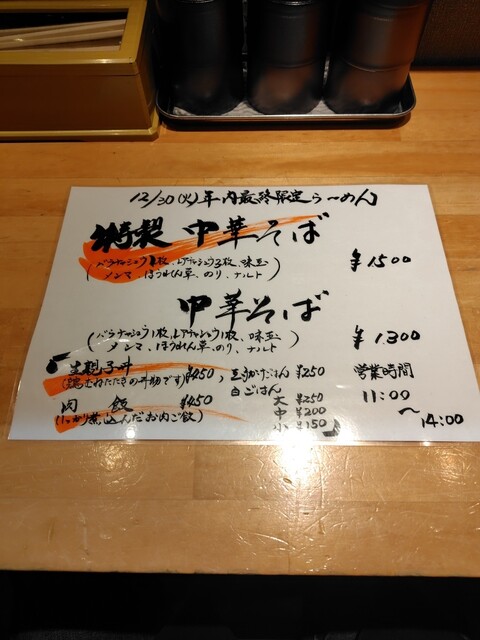 12/30(火)年内最終限定らーめん
特製 中華そば
(バラチャーシュー1枚、レアチャーシュー3枚、味玉
メンマ、ほうれん草、のり、ナルト)
¥1500
中華そば
(バラチャーシュー1枚、レアチャーシュー1枚、味玉
メンマ、ほうれん草、のり、ナルト)
¥1300
生親子丼 ¥450、玉子かけごはん ¥250
(鶏むねたたきの丼物です)
白ごはん
肉飯 ¥450
(しっかり煮込んだお肉ご飯)
大 ¥250
中 ¥200
小 ¥150
営業時間
11:00
〜
14:00